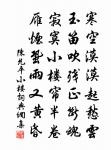 寒空漠漠起愁雲
玉笛吹殘正斷魂
寂寞小樓簾半卷
雁煙蛩雨又黃昏
陳允平小樓詞典調名